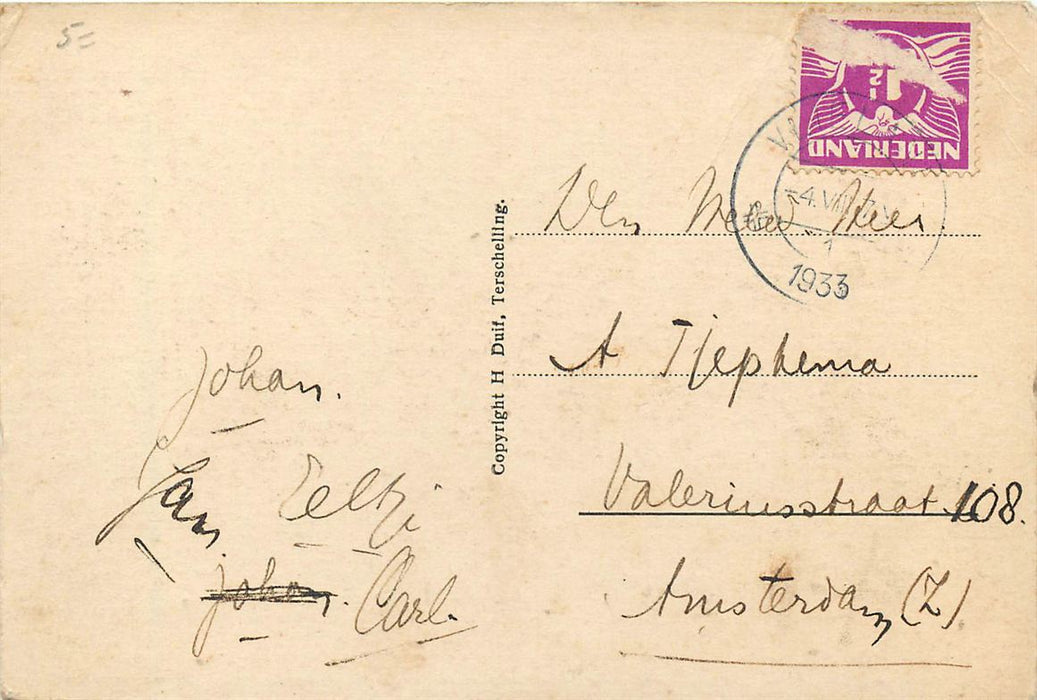 5=
1½
NEDERLAND
4.VIII
1
1933
Den Heer
A Tjephema
Valeriusstraat 108.
Amsterdam (Z)
Copyright H Duif, Terschelling.
Johan.
Jan Eeltji
Johan. Carl.